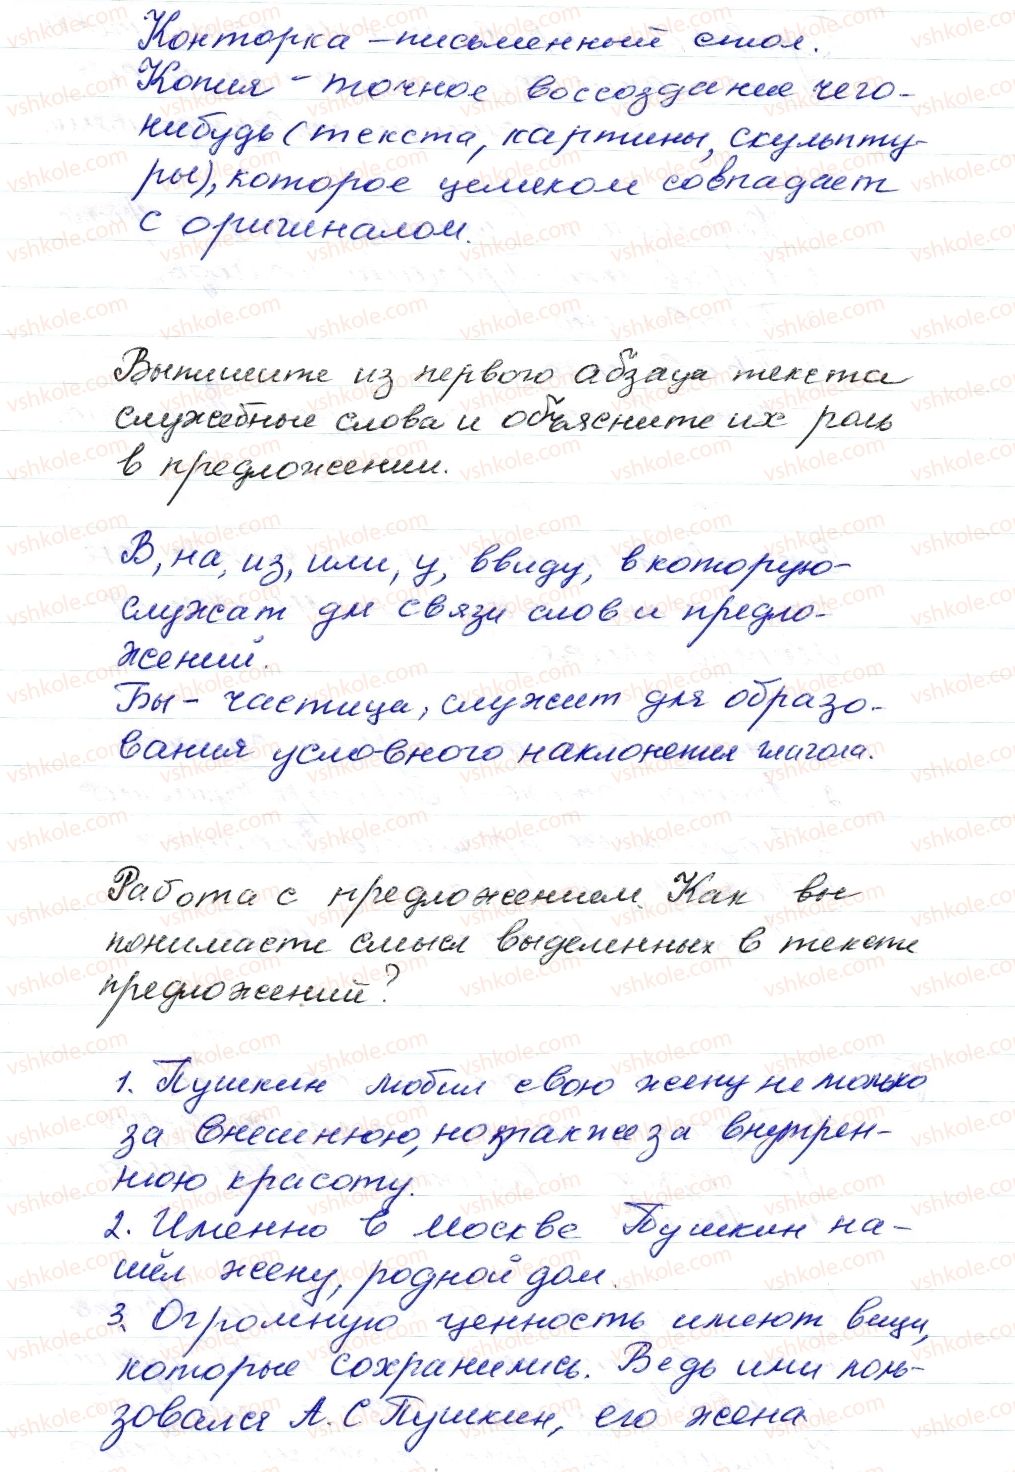 Конторка – письменный стол.
Копия – точное воссоздание чего-
нибудь (текста, картины, скульпту-
ры), которое целиком совпадает
с оригиналом.
Выпишите из первого абзаца текста
служебные слова и объясните их роль
в предложении.
В, на, из, или, у, ввиду, в которую-
служат для связи слов и предло-
жений.
Бы – частица, служит для образо-
вания условного наклонения глагола.
Работа с предложением. Как вы
понимаете смысл выделенных в тексте
предложений?
1. Пушкин любил свою жену не только
за внешнюю, но также за внутрен-
нюю красоту.
2. Именно в Москве Пушкин на-
шёл жену, родной дом.
3. Огромную ценность имеют вещи,
которые сохранились. Ведь ими поль-
зовался А.С Пушкин, его жена